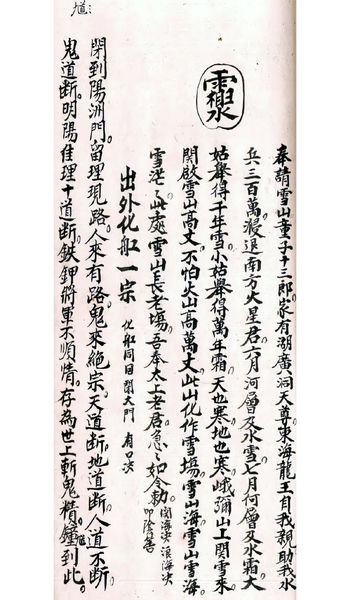 奉請雪山童子十三郎家有湖廣洞天尊東海龍王自我親助我水
兵三百萬濅退南方火星君六月河層及水雪七月何層及水霜大
姑舉得千年雪小姑舉得萬年霜天也寒地也寒峨彌山上関雪來
関啟雪山高丈不怕火山高萬丈此山化作雪塲雪山海雪山雪海
雪茫〻此處雪山長老塲吾奉太上老君急〻如令勅
出外化船一宗
閉到陽洲門留理現路人來有路鬼來絶宗天道断地道断人道不断
鬼道断明陽隹理十道断鉄鉀將軍不順情存為世上斬鬼精鐘到此